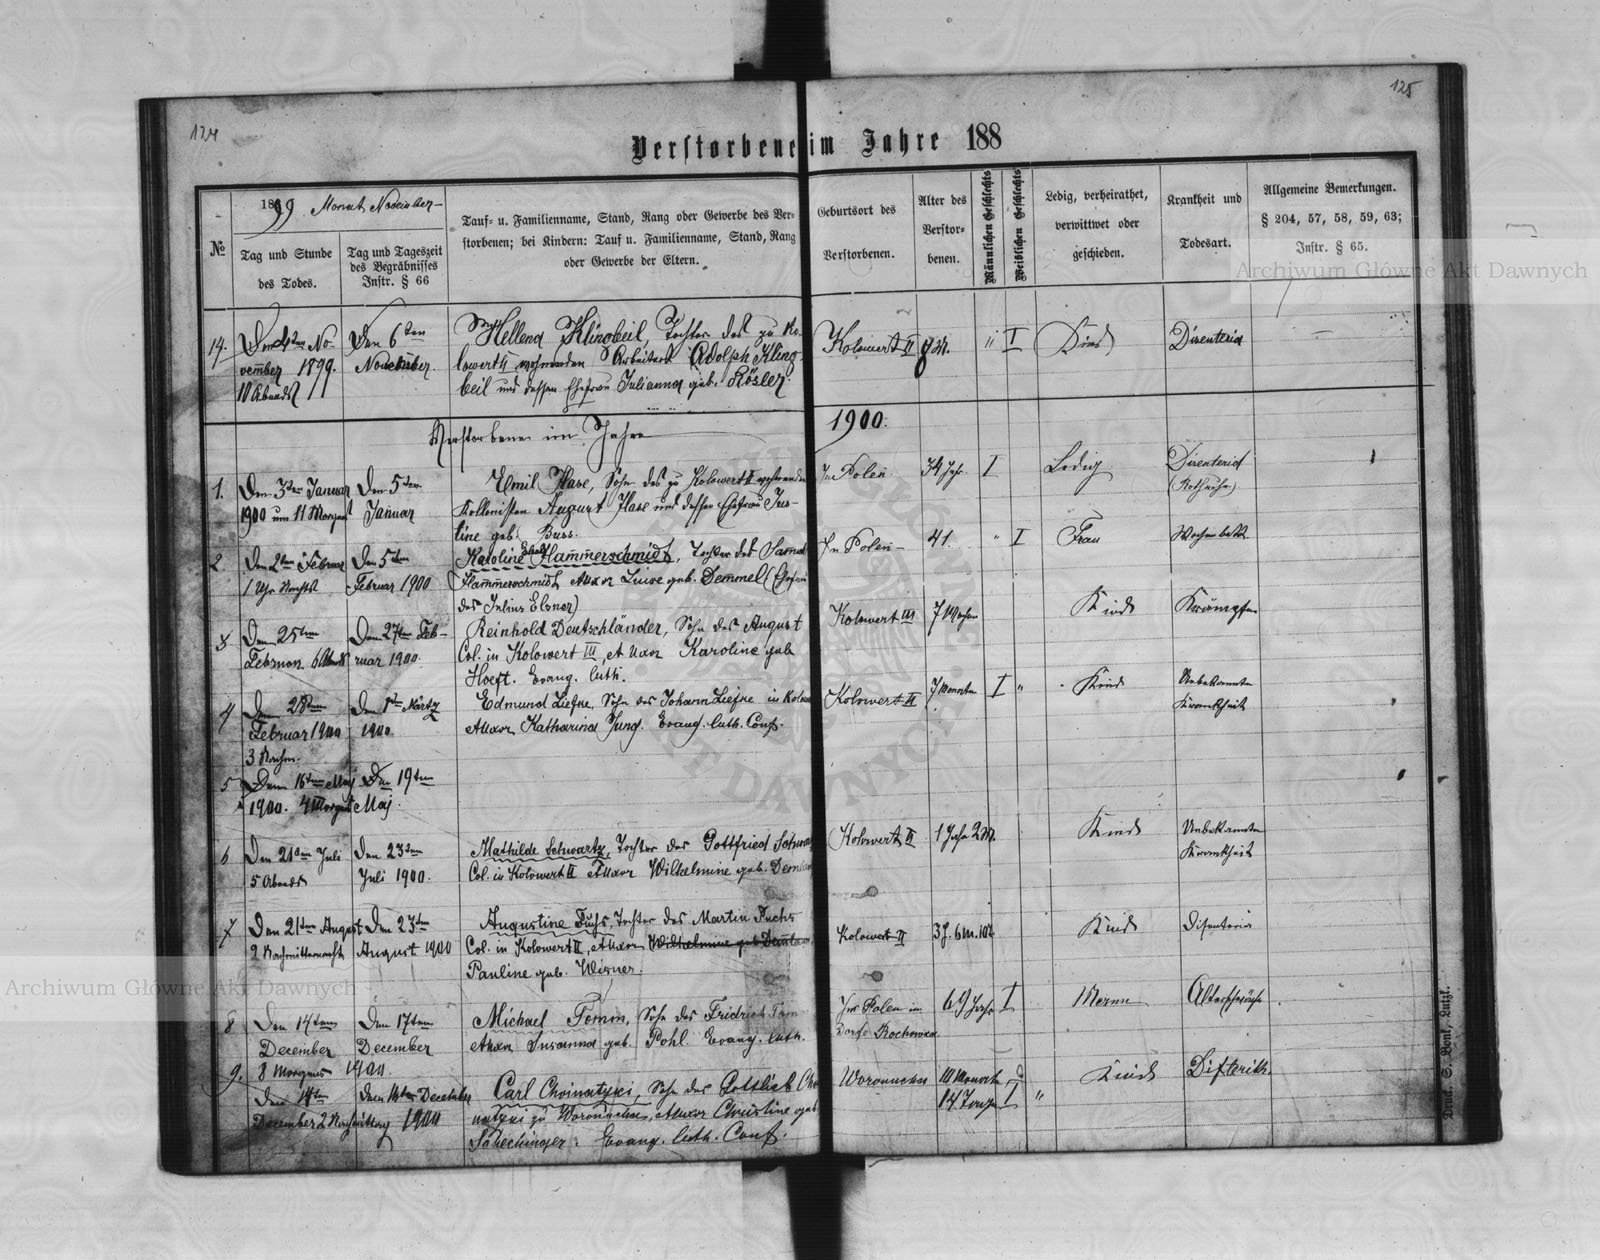 124
125
Verstorbene im Jahre 188
1899 Monat November
№
Tag und Stunde
des Todes.
Tag und Tageszeit
des Begräbnisses
Instr. § 66
Tauf= u. Familienname, Stand, Rang oder Gewerbe des Ver-
storbenen; bei Kindern: Tauf u. Familienname, Stand, Rang
oder Gewerbe der Eltern.
Geburtsort des
Verstorbenen.
Alter des
Verstor-
benen.
Männlichen Geschlechts
Weiblichen Geschlechts
Ledig, verheirathet,
verwittwet oder
geschieden.
Krankheit und
Todesart.
Allgemeine Bemerkungen.
§ 204, 57, 58, 59, 63;
Instr. § 65.
Archiwum Główne Akt Dawnych
14.
Den 4ten No-
vember 1899.
10 Abends
Den 6ten
November.
Hellena Klingbeil, Tochter des zu Ko-
lowerts wohnenden Arbeiters Adolph Kling-
beil und dessen Ehefrau Julianna geb. Rösler.
Kolowert II
8 M.
" I
Kind
Disenteria
Verstorbene im Jahre
1900.
1.
Den 3ten Januar
1900 um 11 Morgens
Den 5ten
Januar
Emil Hase, Sohn des zu Kolowert II wohnenden
Kollonisten August Hase und dessen Ehefrau Jus-
tine geb. Buss.
In Polen
34 Jahr.
I
Ledig
Disenteria
(Rothruhr)
2.
Den 2ten Februar
1 Uhr Nachts
Den 5ten
Februar 1900
Karoline Hammerschmidt, Tochter des Samuel
Hammerschmidt, et Uxor Luise geb. Demmel (Ehefrau
des Julius Elsner)
In Polen
41.
" I
Frau
Wochenbett.
3
Den 25ten
Februar 6 Abends
Den 27ten Feb-
ruar 1900.
Reinhold Deutschländer, Sohn des August
Col. in Kolowert III, et Uxor Karoline geb.
Hoeft. Evang. luth.
Kolowert III
7 Wochen
Kind
Krämpfe
4
Den 28ten
Februar 1900
3 Nachm.
Den 1te Märtz
1900.
Edmund Liefke, Sohn des Johann Liefke in Kolow
et Uxor Katharina Jung. Evang. luth. Conf.
Kolowert II
7 Monate
I "
Kind
Unbekannte
Krankheit
5
Den 16ten Maj
1900. 4 Morgens
Den 19ten
Maj.
6
Den 21ten Juli
5 Abends
Den 23ten
Juli 1900.
Mathilde Schwartz, Tochter des Gottfried Schwar
Col. in Kolowert II et Uxor Wilhelmine geb.
Kolowert II
1 Jahr 2 M.
Kind
Unbekannte
Krankheit
7
Den 21ten August
2 Nachmitternacht
Den 23ten
August 1900
Augustine Fuhs, Tochter des Martin Fuchs
Col. in Kolowert II, et Uxor Wilhelmine geb.
Pauline geb. Wisner.
Kolowert II
3 J. 6 M. 10 T.
Kind
Disenteria
8
Den 14ten
December
8 Morgens
Den 17ten
December
1900.
Michael Tomm, Sohn des Fridrich Tom
et Uxor Susanna geb. Pohl. Evang. luth.
In Polen im
Dorfe Rochowka.
69 Jahr
I
Mann
Altersschwäche
9.
Den 14ten
December 2 Nachmittag
Den 16ten December
1900
Carl Choinatzki, Sohn des Gottlieb Cho
natzki zu Woronucha, et Uxor Christine geb
Schechinger. Evang. luth. Conf.
Woronucha
10 Monate
14 Tage
I "
Kind
Difterith.
Archiwum Główne Akt Dawnych
Druck. S. Bont, Lutzk.